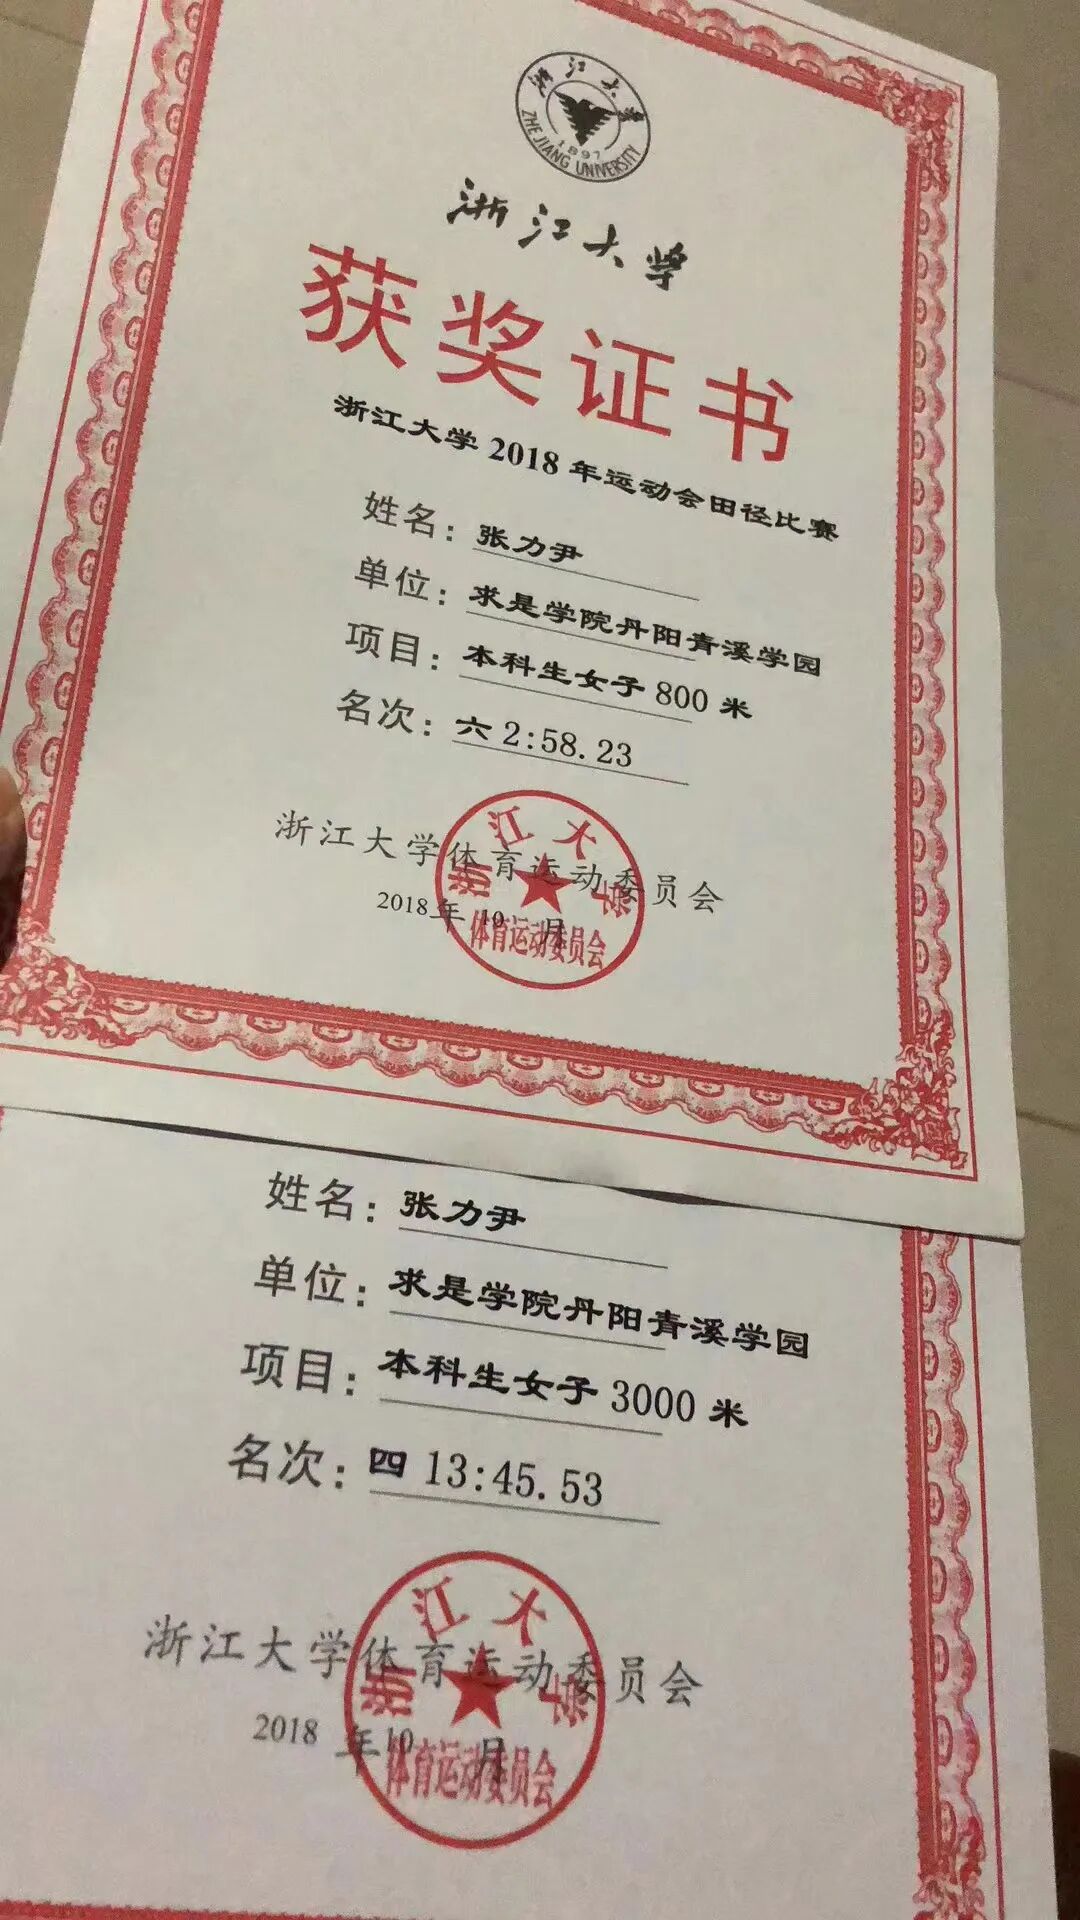 浙江大学
1897
ZHEJIANG UNIVERSITY
浙江大学
获奖证书
浙江大学2018年运动会田径比赛
姓名：张力尹
单位：求是学院丹阳青溪学园
项目：本科生女子800米
名次：六 2:58.23
浙江大学体育运动委员会
2018年10月
浙江大学
体育运动委员会
姓名：张力尹
单位：求是学院丹阳青溪学园
项目：本科生女子3000米
名次：四 13:45.53
浙江大学体育运动委员会
2018年10月
浙江大学
体育运动委员会